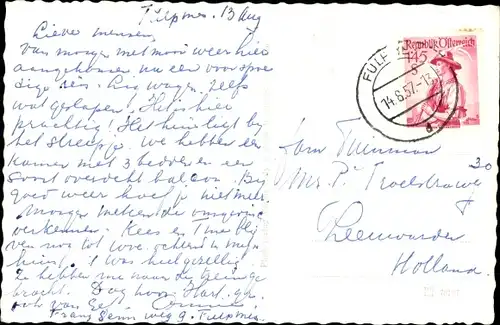 Fulpmes. 13 Aug
Lieve mensen,
van morgen met mooi weer hier
aangekomen na een voorspoe
dige reis. In wagen zelfs
wat geslapen! Het is hier
prachtig! Het huis ligt bij
het streepje. We hebben een
kamer met 3 bedden en een
soort overdekt balcon. Bij
goed weer hoef je niet meer.
Morgen de omgeving
verkennen. Kees en
ven nog tot
huis. 't was heel gezellig
Ze hebben me naar de trein ge
bracht. Dag hoor. Hart. gr.
ook van
Franz Senn weg 9. Fulpmes.
Republik Österreich
1.45
S
FULP
14.8.57.-13
a
Fam
Mr. P. Troelstraweg
30
Leeuwarden
Holland.